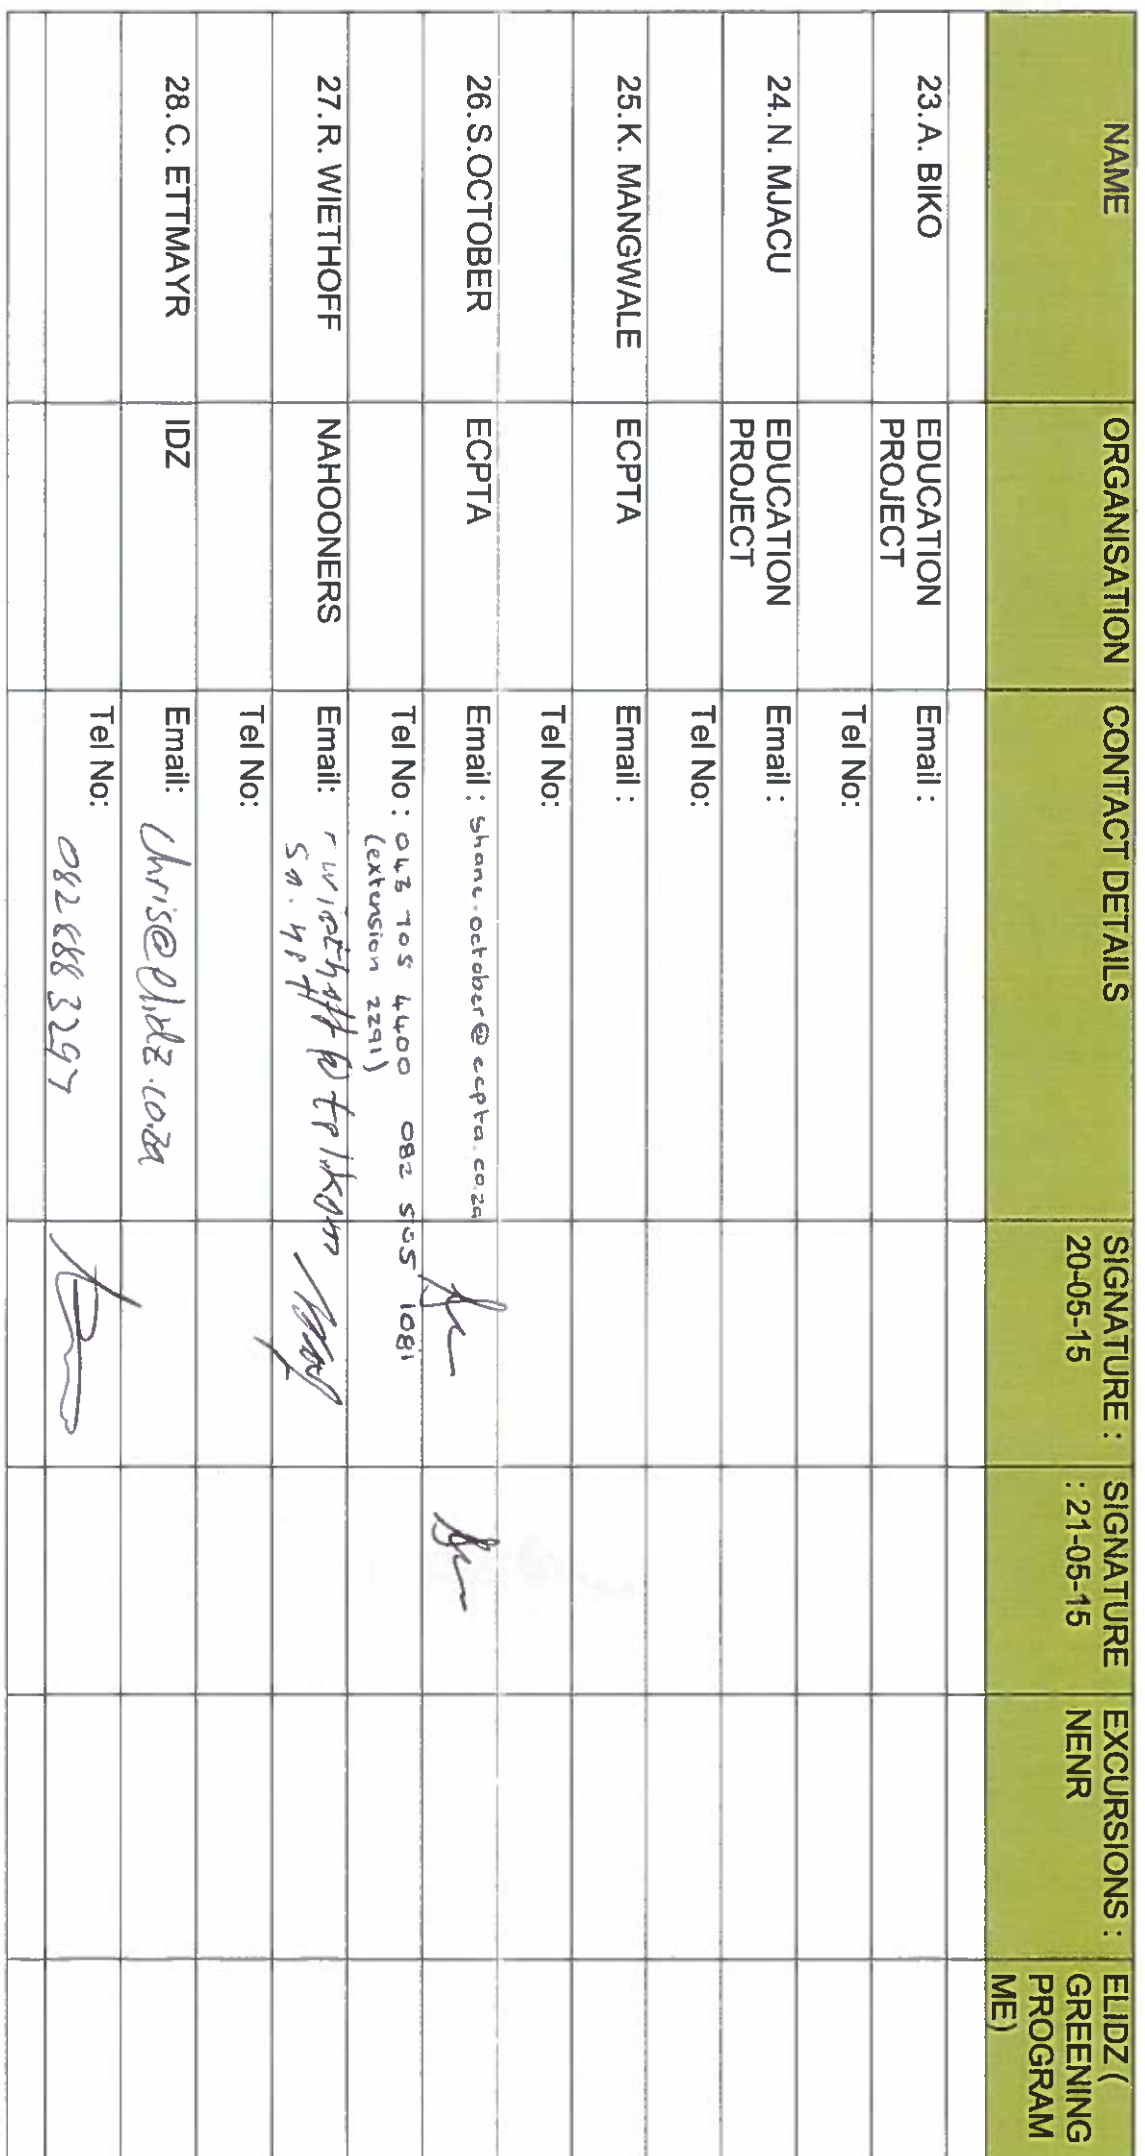 NAME
ORGANISATION
CONTACT DETAILS
SIGNATURE :
20-05-15
SIGNATURE
: 21-05-15
EXCURSIONS :
NENR
ELIDZ (
GREENING
PROGRAM
ME)
23. A. BIKO
EDUCATION
PROJECT
Email :
Tel No:
24. N. MJACU
EDUCATION
PROJECT
Email :
Tel No:
25. K. MANGWALE
ECPTA
Email :
Tel No:
26. S.OCTOBER
ECPTA
Email : shane.october@ecpta.co.za
Tel No : 043 705 4400 082 505 1081
(extension 2291)
27. R. WIETHOFF
NAHOONERS
Email:
Tel No:
28. C. ETTMAYR
IDZ
Email: chris@elidz.co.za
Tel No:
082 888 3297